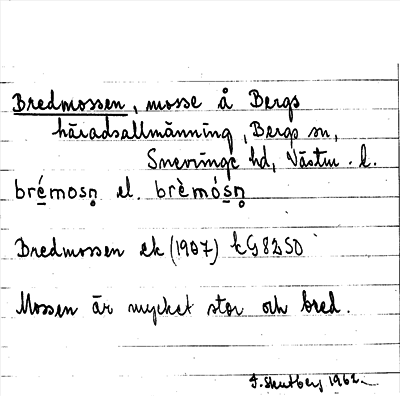 Bredmossen, mosse å Bergs
häradsallmänning, Bergs sn,
Snevringe hd, Västm. l.
brém̀osn̥ el. brèmósn̥
Bredmossen ek (1907)
Mossen är mycket stor och bred.
1962